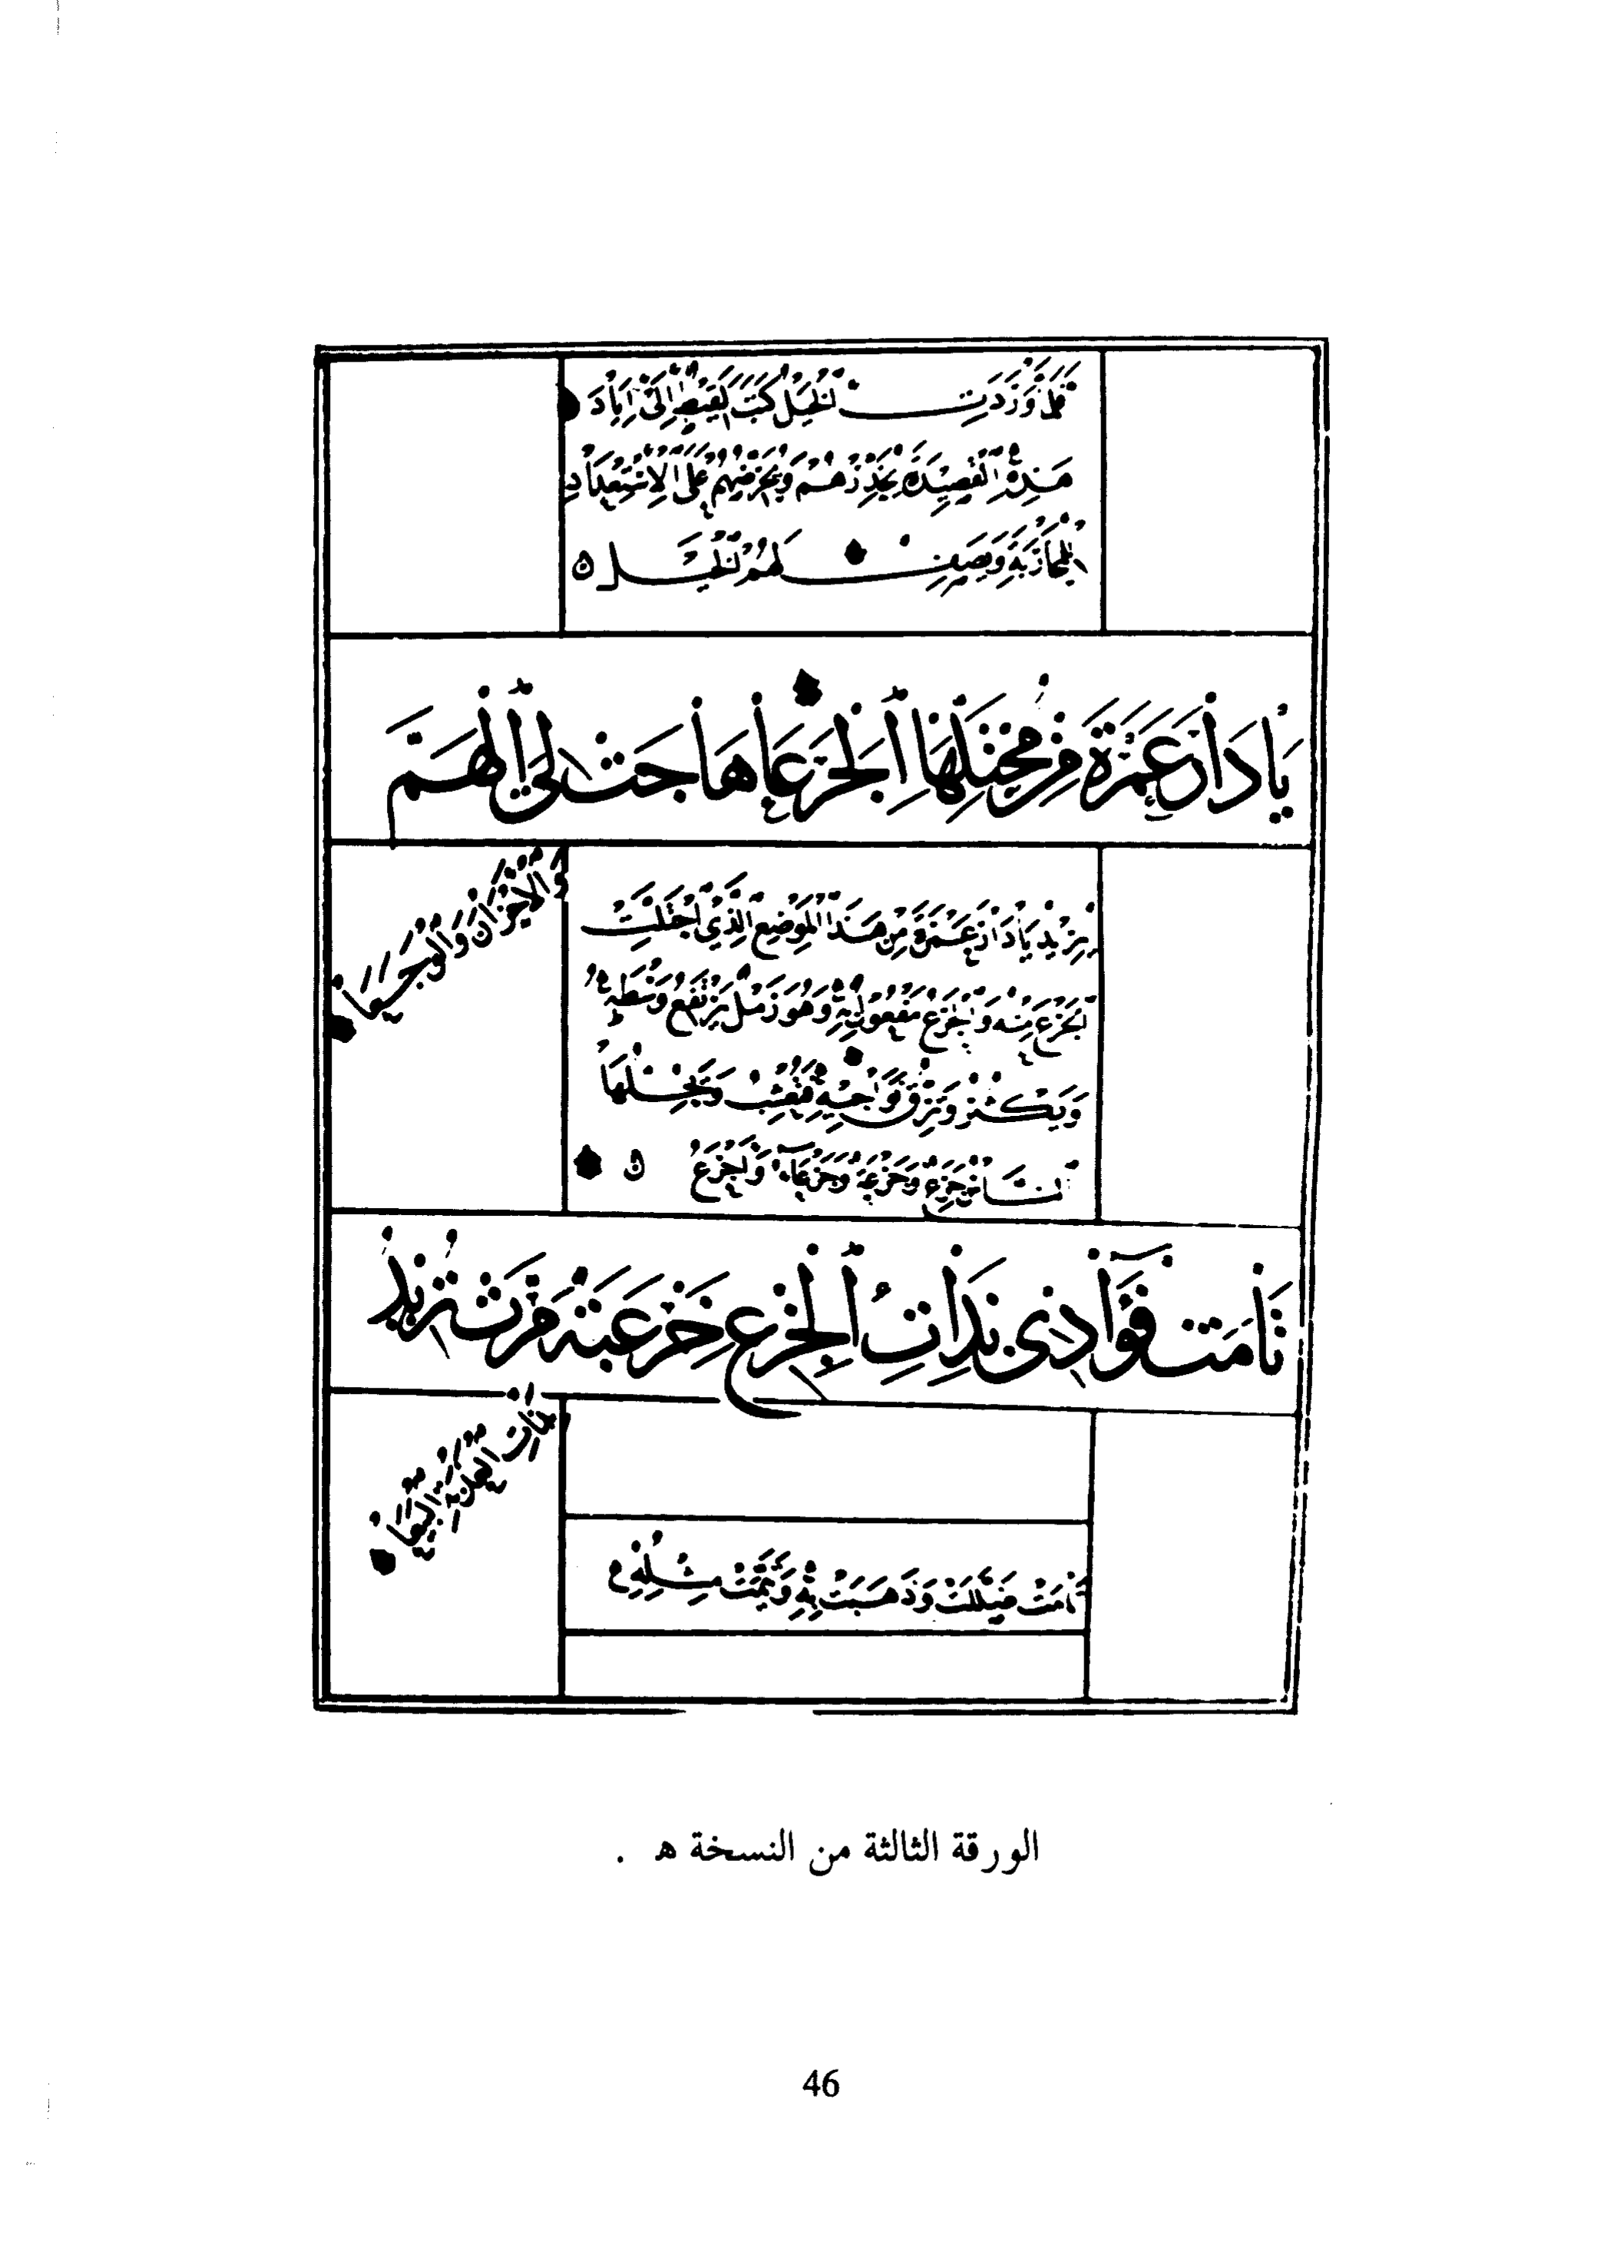 فَلَمَّا وَرَدَتِ الْخَيْلُ كَتَبَ لَقِيطٌ إِلَى إِيَادَ
هَذِهِ الْقَصِيدَةَ يُحَذِّرُهُمْ وَيُحَرِّضُهُمْ عَلَى الِاسْتِعْدَادِ
لِمُحَارَبَةِ وَيَصِفُ لَهُمُ الْخَيْلَ ه
يَا دَارَ عَمْرَةَ مِنْ مُحْتَلِّهَا الْجَرَعَا هَاجَتْ لِيَ الْهَمَّ
وَالْأَحْزَانَ وَالْوَجَعَا
يُرِيدُ يَا دَارَ عَمْرَةَ مِنْ هَذَا الْمَوْضِعِ الَّذِي احْتَلَّتِ
الْجَرَعَ مِنْهُ وَالْجَرَعُ مَفْعُولٌ بِهِ وَهُوَ رَمْلٌ يَرْتَفِعُ وَسَطُهُ
وَيَكْثُرُ وَتَرِقُّ نَوَاحِيهِ فَتُعْشِبُ وَيَحْتَلُّهَا
النَّاسُ جَرَعٌ وَجَرَعَةٌ وَجَرْعَاءُ وَأَجْرَعُ ه
تَامَتْ فُؤَادِي بِذَاتِ الْجِزْعِ خَرْعَبَةٌ مَرَّتْ تُرِيدُ
بِذَاتِ الْعَذْبَةِ الْبِيَعَا
تَامَتْ ضَلَّلَتْ وَذَهَبَتْ بِهِ وَتَيَّمَتْ مِثْلُهُ
الورقة الثالثة من النسخة هـ .
46